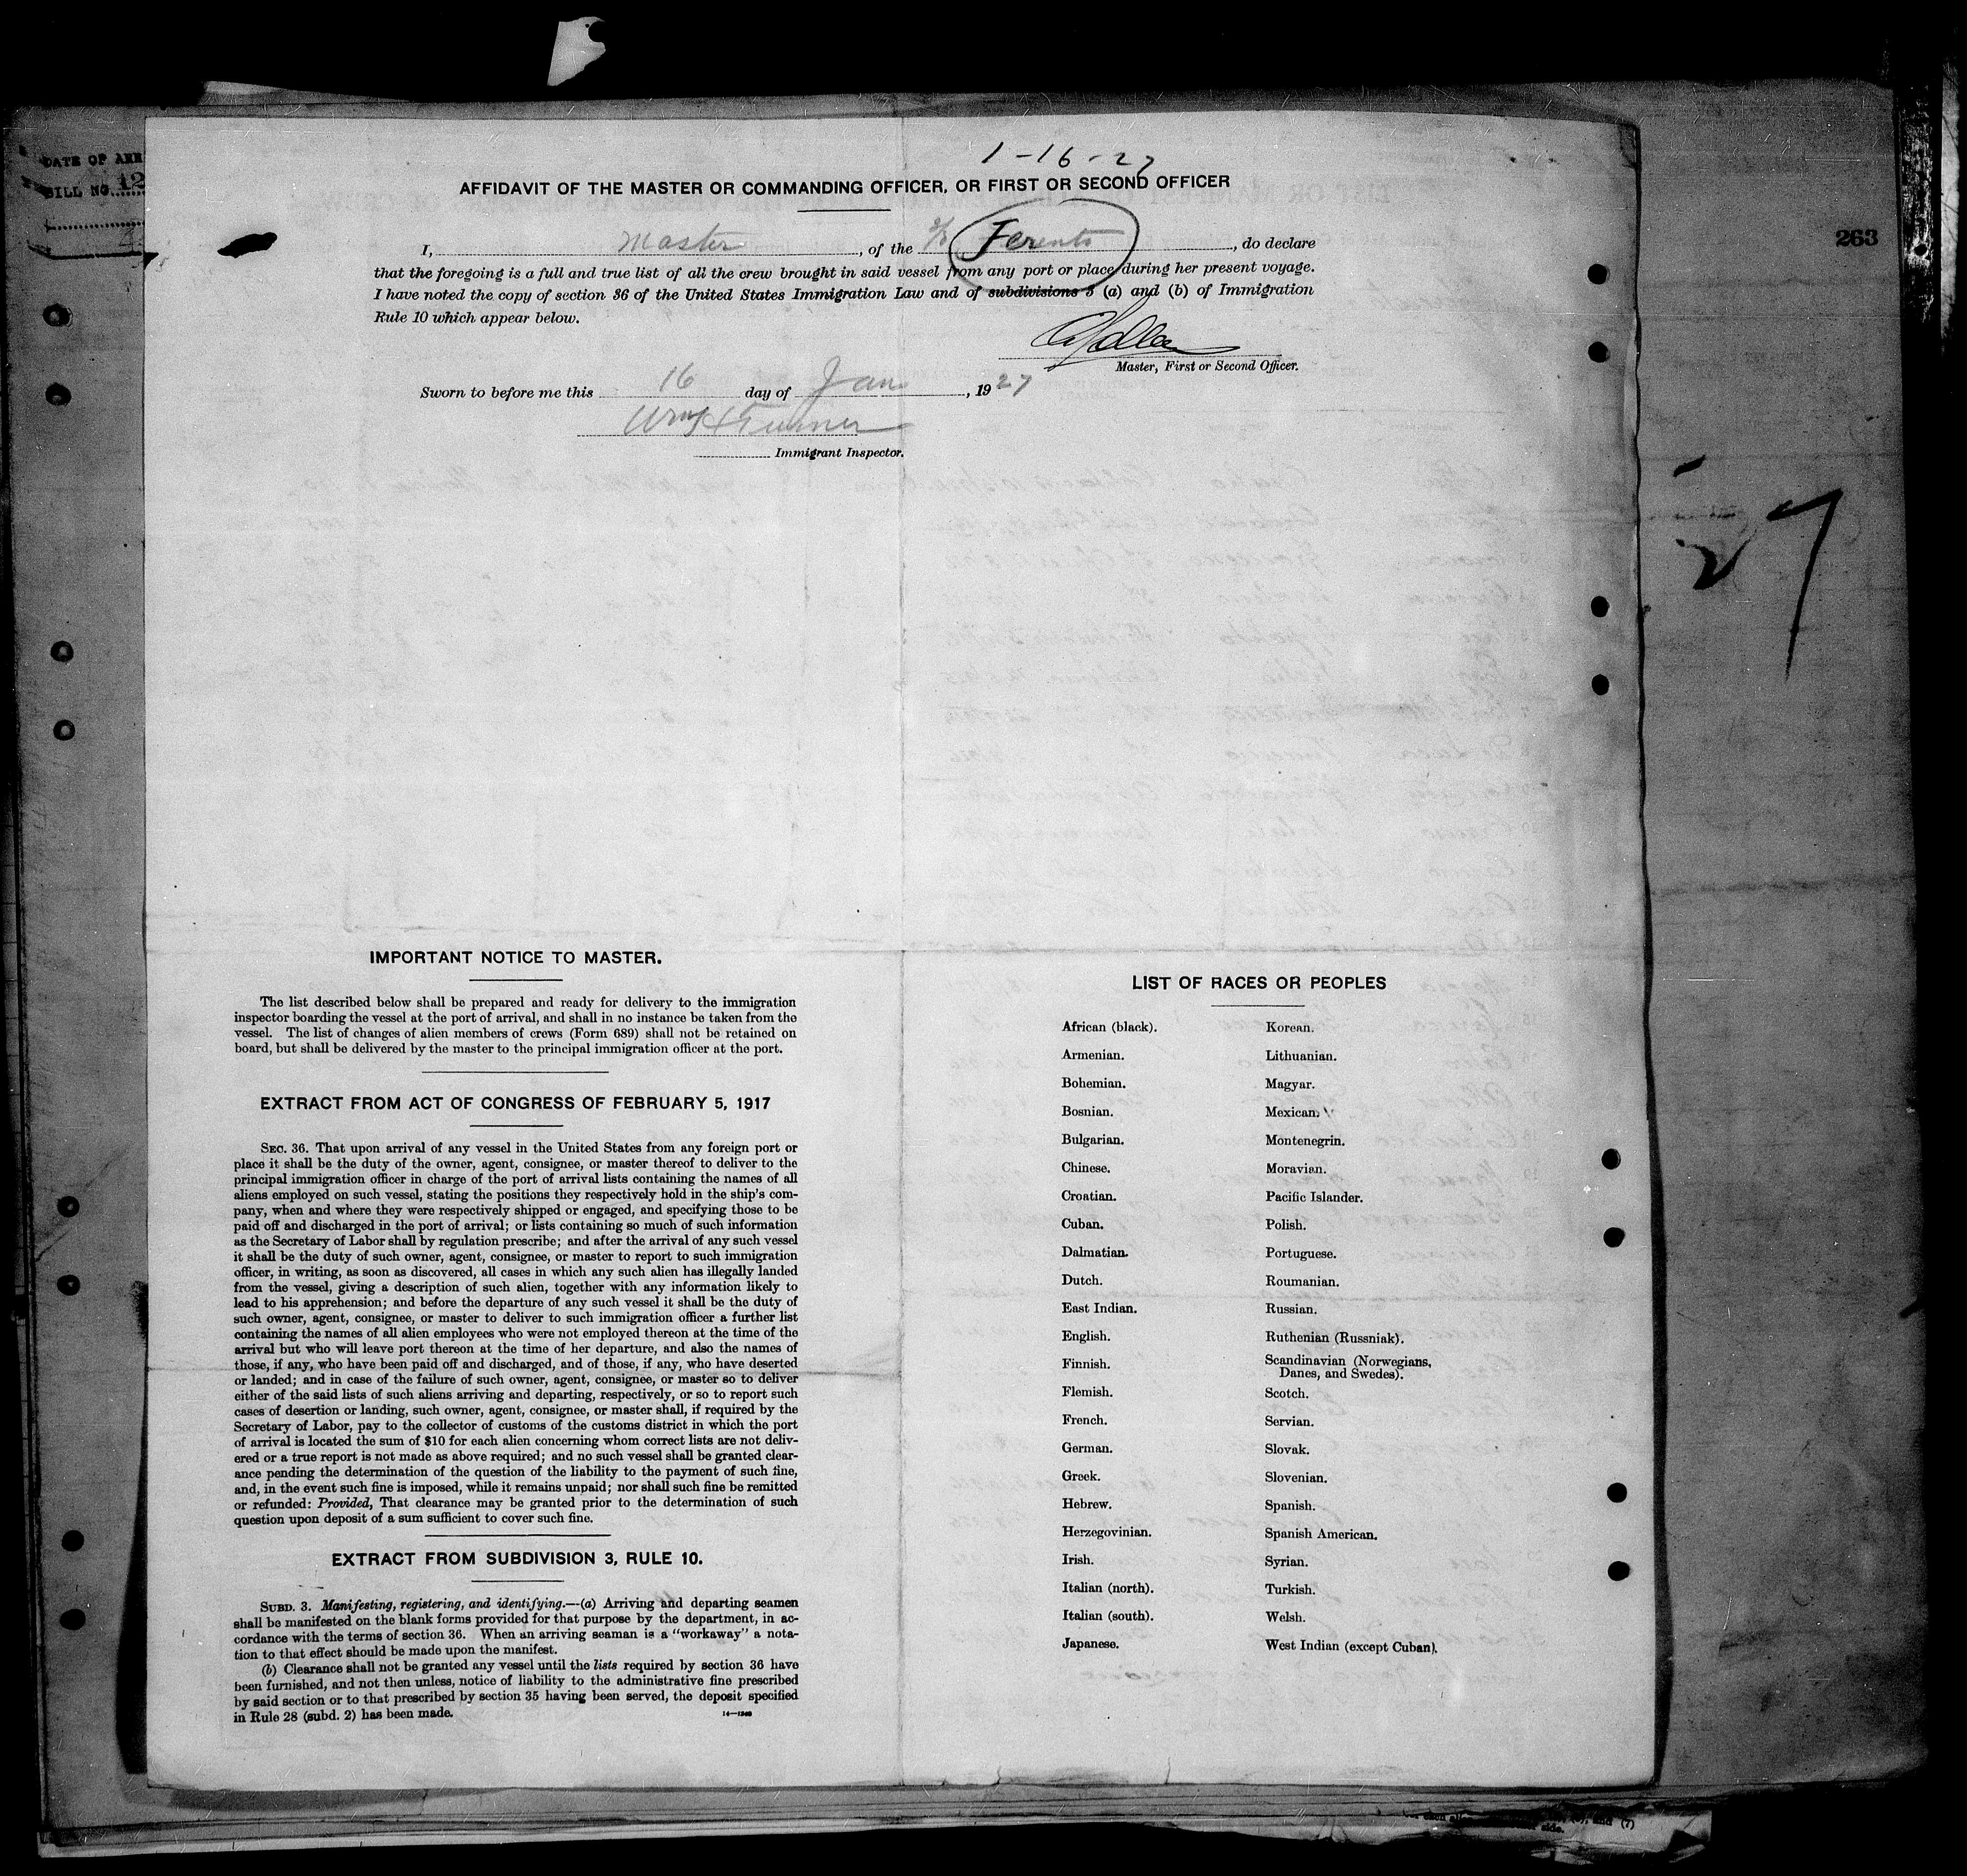 DATE OF ARR
BILL NO. 12
1-16-27
AFFIDAVIT OF THE MASTER OR COMMANDING OFFICER, OR FIRST OR SECOND OFFICER
263
I, Master, of the S/S, do declare
that the foregoing is a full and true list of all the crew brought in said vessel from any port or place during her present voyage.
I have noted the copy of section 36 of the United States Immigration Law and of subdivisions 3 (a) and (b) of Immigration
Rule 10 which appear below.
Master, First or Second Officer.
Sworn to before me this 16 day of Jan, 1927
Turner
Immigrant Inspector.
27
IMPORTANT NOTICE TO MASTER.
The list described below shall be prepared and ready for delivery to the immigration
inspector boarding the vessel at the port of arrival, and shall in no instance be taken from the
vessel. The list of changes of alien members of crews (Form 689) shall not be retained on
board, but shall be delivered by the master to the principal immigration officer at the port.
EXTRACT FROM ACT OF CONGRESS OF FEBRUARY 5, 1917
SEC. 36. That upon arrival of any vessel in the United States from any foreign port or
place it shall be the duty of the owner, agent, consignee, or master thereof to deliver to the
principal immigration officer in charge of the port of arrival lists containing the names of all
aliens employed on such vessel, stating the positions they respectively hold in the ship's com-
pany, when and where they were respectively shipped or engaged, and specifying those to be
paid off and discharged in the port of arrival; or lists containing so much of such information
as the Secretary of Labor shall by regulation prescribe; and after the arrival of any such vessel
it shall be the duty of such owner, agent, consignee, or master to report to such immigration
officer, in writing, as soon as discovered, all cases in which any such alien has illegally landed
from the vessel, giving a description of such alien, together with any information likely to
lead to his apprehension; and before the departure of any such vessel it shall be the duty of
such owner, agent, consignee, or master to deliver to such immigration officer a further list
containing the names of all alien employees who were not employed thereon at the time of the
arrival but who will leave port thereon at the time of her departure, and also the names of
those, if any, who have been paid off and discharged, and of those, if any, who have deserted
or landed; and in case of the failure of such owner, agent, consignee, or master so to deliver
either of the said lists of such aliens arriving and departing, respectively, or so to report such
cases of desertion or landing, such owner, agent, consignee, or master shall, if required by the
Secretary of Labor, pay to the collector of customs of the customs district in which the port
of arrival is located the sum of $10 for each alien concerning whom correct lists are not deliv-
ered or a true report is not made as above required; and no such vessel shall be granted clear-
ance pending the determination of the question of the liability to the payment of such fine,
and, in the event such fine is imposed, while it remains unpaid; nor shall such fine be remitted
or refunded: Provided, That clearance may be granted prior to the determination of such
question upon deposit of a sum sufficient to cover such fine.
EXTRACT FROM SUBDIVISION 3, RULE 10.
SUBD. 3. Manifesting, registering, and identifying.—(a) Arriving and departing seamen
shall be manifested on the blank forms provided for that purpose by the department, in ac-
cordance with the terms of section 36. When an arriving seaman is a "workaway" a nota-
tion to that effect should be made upon the manifest.
(b) Clearance shall not be granted any vessel until the lists required by section 36 have
been furnished, and not then unless, notice of liability to the administrative fine prescribed
by said section or to that prescribed by section 35 having been served, the deposit specified
in Rule 28 (subd. 2) has been made.
LIST OF RACES OR PEOPLES
African (black). Korean.
Armenian. Lithuanian.
Bohemian. Magyar.
Bosnian. Mexican.
Bulgarian. Montenegrin.
Chinese. Moravian.
Croatian. Pacific Islander.
Cuban. Polish.
Dalmatian. Portuguese.
Dutch. Roumanian.
East Indian. Russian.
English. Ruthenian (Russniak).
Finnish. Scandinavian (Norwegians,
Danes, and Swedes).
Flemish. Scotch.
French. Servian.
German. Slovak.
Greek. Slovenian.
Hebrew. Spanish.
Herzegovinian. Spanish American.
Irish. Syrian.
Italian (north). Turkish.
Italian (south). Welsh.
Japanese. West Indian (except Cuban).
and (7)
side.